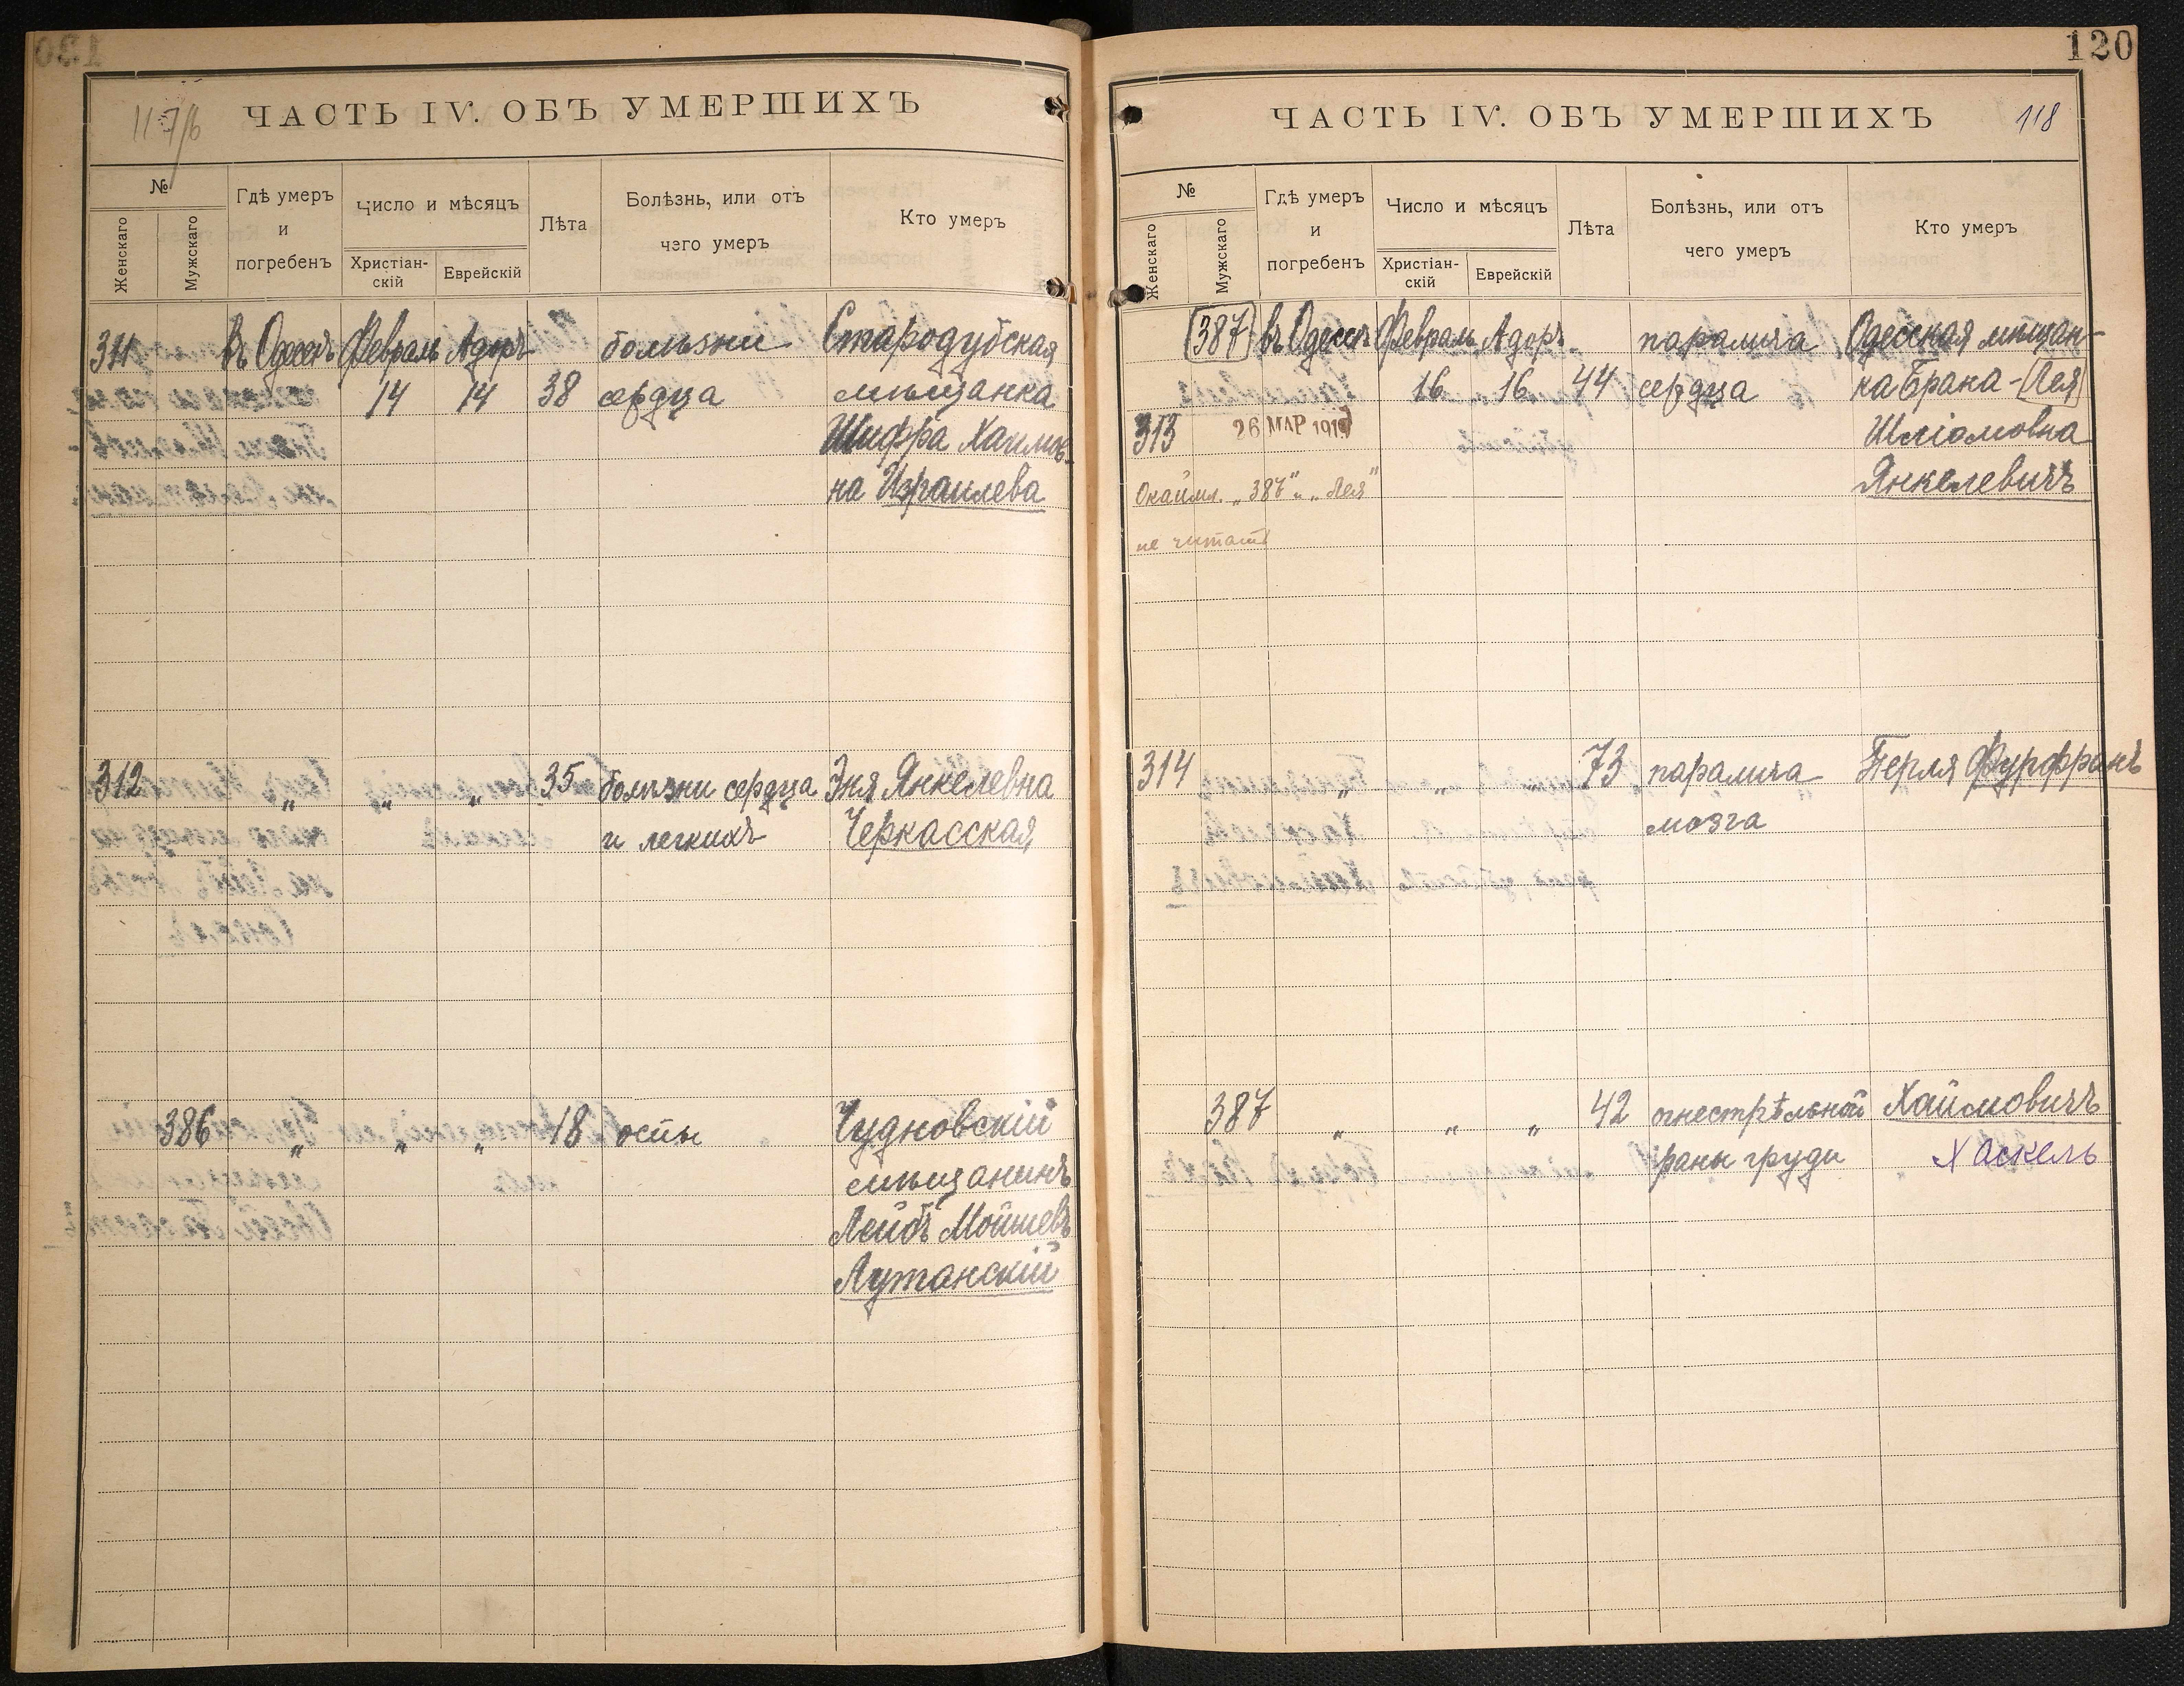 ЧАСТЬ IV. ОБЪ УМЕРШИХЪ
№
Женскаго
Мужскаго
Гдѣ умеръ
и
погребенъ
Число и мѣсяцъ
Христіан-
скій
Еврейскій
Лѣта
Болѣзнь, или отъ
чего умеръ
Кто умеръ
311 въ Одессѣ Февраль Адоръ болѣзни Стародубская
14 14 38 сердца мѣщанка
Шифра Хаимов-
на Израилева
312 " " " 35 болѣзни сердца Эня Янкелевна
и легкихъ Черкасская
386 " " " 18 оспы Чудновскій
мѣщанинъ
Лейбъ Мойшевъ
Лутанскій
120
ЧАСТЬ IV. ОБЪ УМЕРШИХЪ 118
№
Женскаго
Мужскаго
Гдѣ умеръ
и
погребенъ
Число и мѣсяцъ
Христіан-
скій
Еврейскій
Лѣта
Болѣзнь, или отъ
чего умеръ
Кто умеръ
387 въ Одессѣ Февраль Адоръ паралича Одесская мѣщан-
16 16 44 сердца ка Брана-Лея
313 26 МАР 1919 Шліомовна
Окаймл. „387“ и „Лея“ Янкелевичъ
не читать
314 " " " 73 паралича Перля Фурфранъ
мозга
387 " " " 42 огнестрѣльной Хаймовичъ
раны груди Хаскель